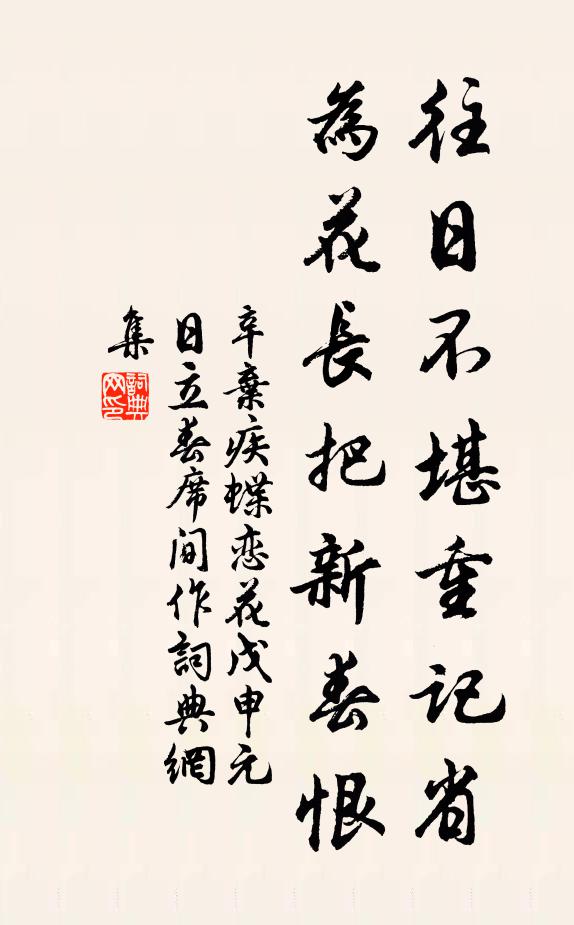 往日不堪重記省
為花長把新春恨
辛棄疾蝶恋花戊申元
日立春席間作詞典網
集
詞典
网印